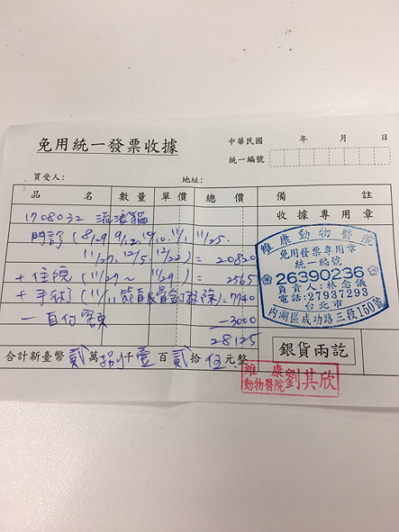 免用統一發票收據
中華民國 年 月 日
統一編號
買受人： 地址：
品 名 數量 單價 總價 備 註
收據專用章
1708032 流浪貓
門診 (8/29, 9/12, 10/10, 11/1, 11/25,
11/27, 12/5, 12/22) = 20820
+ 住院 (11/27 ~ 11/29) = 2565
+ 手術 (11/11 = 7740
- 自付 -3000
28125
合計新臺幣 貳 萬 捌 仟 壹 百 貳 拾 伍 元整
銀貨兩訖
維康動物醫院
免用發票專用章
統一編號
26390236
負責人：林念儀
電話：27937293
台北市
內湖區成功路三段150號
維康
動物醫院 劉其欣